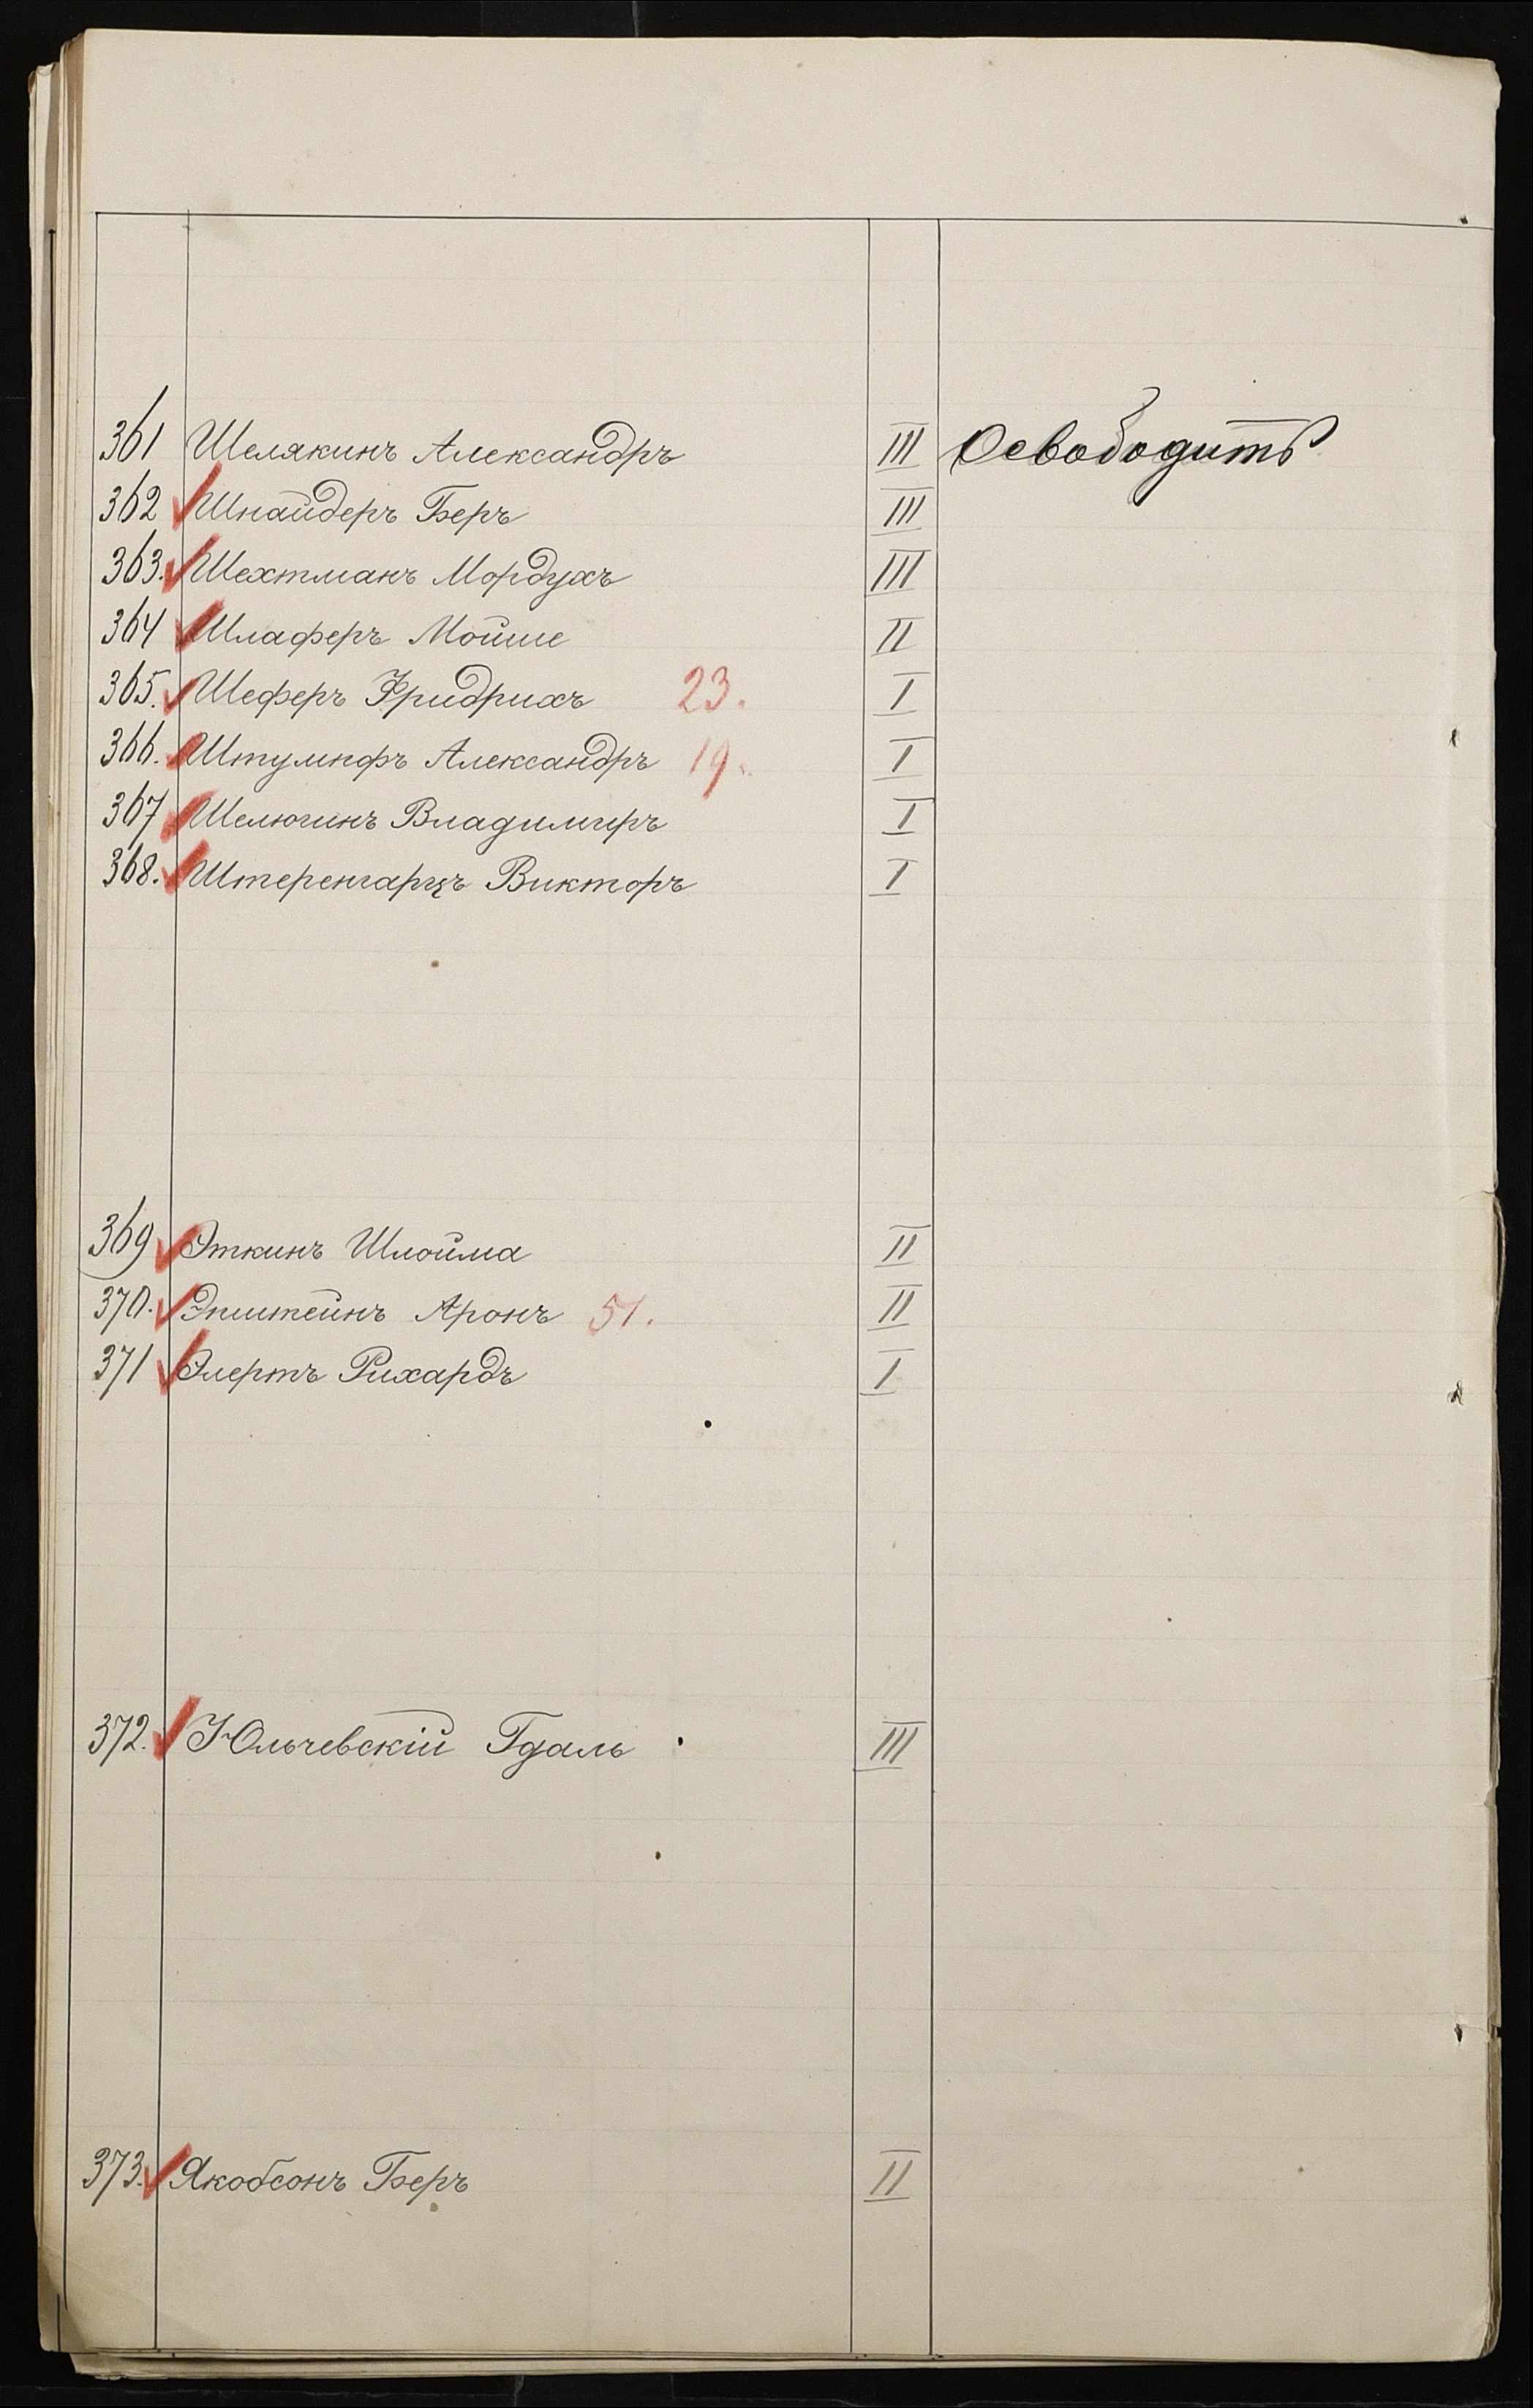 361 Шелякинъ Александръ III Освободить
362 Шнайдеръ Беръ III
363. Шехтманъ Мордухъ III
364 Шлаферъ Мойше II
365. Шеферъ Фридрихъ 23. I
366. Штумпфъ Александръ 19. I
367 Шелюгинъ Владимиръ I
368. Штеренгарцъ Викторъ I
369 Эткинъ Шлойма II
370. Эпштейнъ Аронъ 51. II
371 Элертъ Рихардъ I
372. Юльчевскій Гдаль III
373. Якобсонъ Беръ II